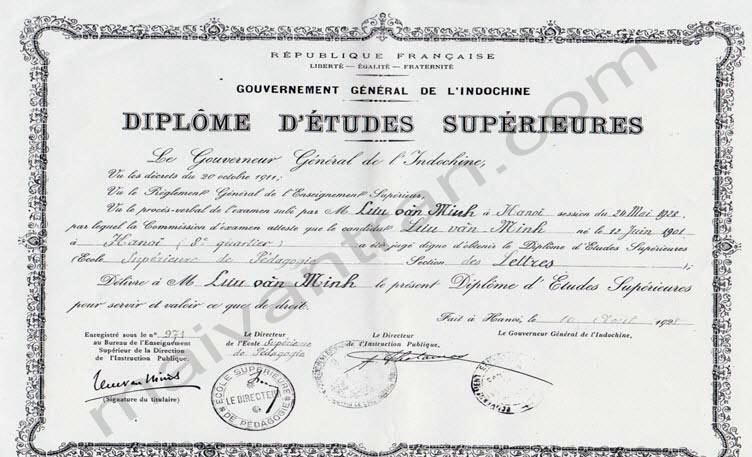 RÉPUBLIQUE FRANÇAISE
LIBERTÉ — ÉGALITÉ — FRATERNITÉ
GOUVERNEMENT GÉNÉRAL DE L'INDOCHINE
DIPLÔME D'ÉTUDES SUPÉRIEURES
Le Gouverneur Général de l'Indochine,
Vu les décrets du 20 octobre 1911;
Vu le Règlement Général de l'Enseignement Supérieur,
Vu le procès-verbal de l'examen subi par M. Lưu văn Minh à Hanoi session du 24 Mai 1928,
par lequel la Commission d'examen atteste que le candidat Lưu văn Minh né le 12 Juin 1901
à Hanoi (8e quartier) a été jugé digne d'obtenir le Diplôme d'Etudes Supérieures
(Ecole Supérieure de Pédagogie Section des Lettres);
Délivre à M. Lưu văn Minh le présent Diplôme d'Etudes Supérieures
pour servir et valoir ce que de droit.
Fait à Hanoi, le 10 1928
Enregistré sous le n° 973
au Bureau de l'Enseignement
Supérieur de la Direction
de l'Instruction Publique.
(Signature du titulaire)
Le Directeur
de l'Ecole Supérieure
de Pédagogie
ECOLE SUPÉRIEURE
LE DIRECTEUR
DE PÉDAGOGIE
Le Directeur
de l'Instruction Publique,
Le Gouverneur Général de l'Indochine,
maivantran.com